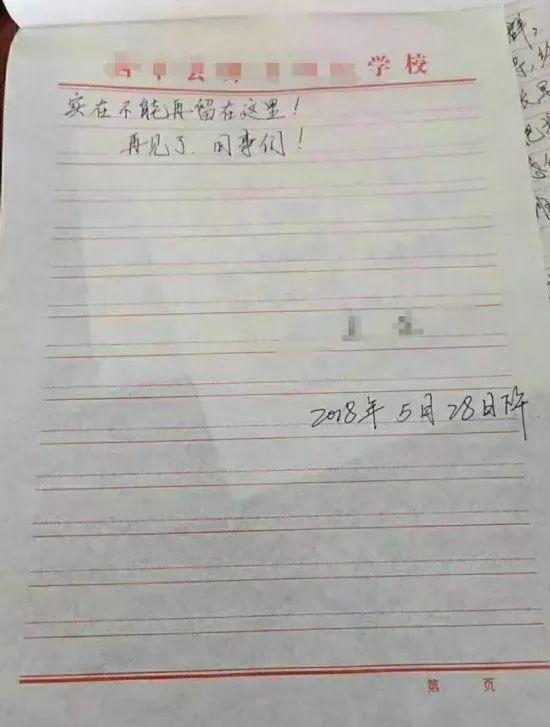 学校
实在不能再留在这里！
再见了、同事们！
2018年5月28日下午
第 页